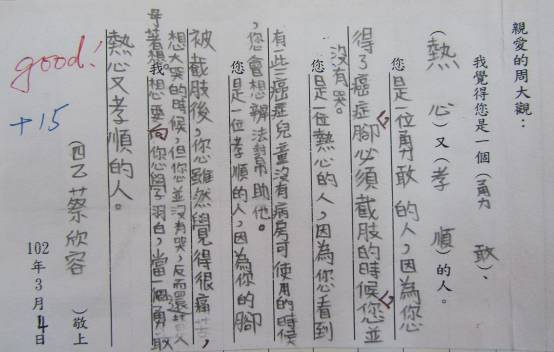 親愛的周大觀：
我覺得您是一個(勇敢)、
(熱心)又(孝順)的人。
您是一位勇敢的人，因為您
得了癌症腳必須截肢的時候您並
沒有哭。
您是一位熱心的人，因為您看到
有些癌症兒童沒有病房可使用的時候
，您會想辦法幫助他。
您是一位孝順的人，因為你的腳
被截肢後，您雖然覺得很痛苦，
想大哭的時候，但您並沒有哭，反而還
著想。我想要向你學習，當一個勇敢
熱心又孝順的人。
(四乙蔡欣容)敬上
102年3月4日
good!
+15